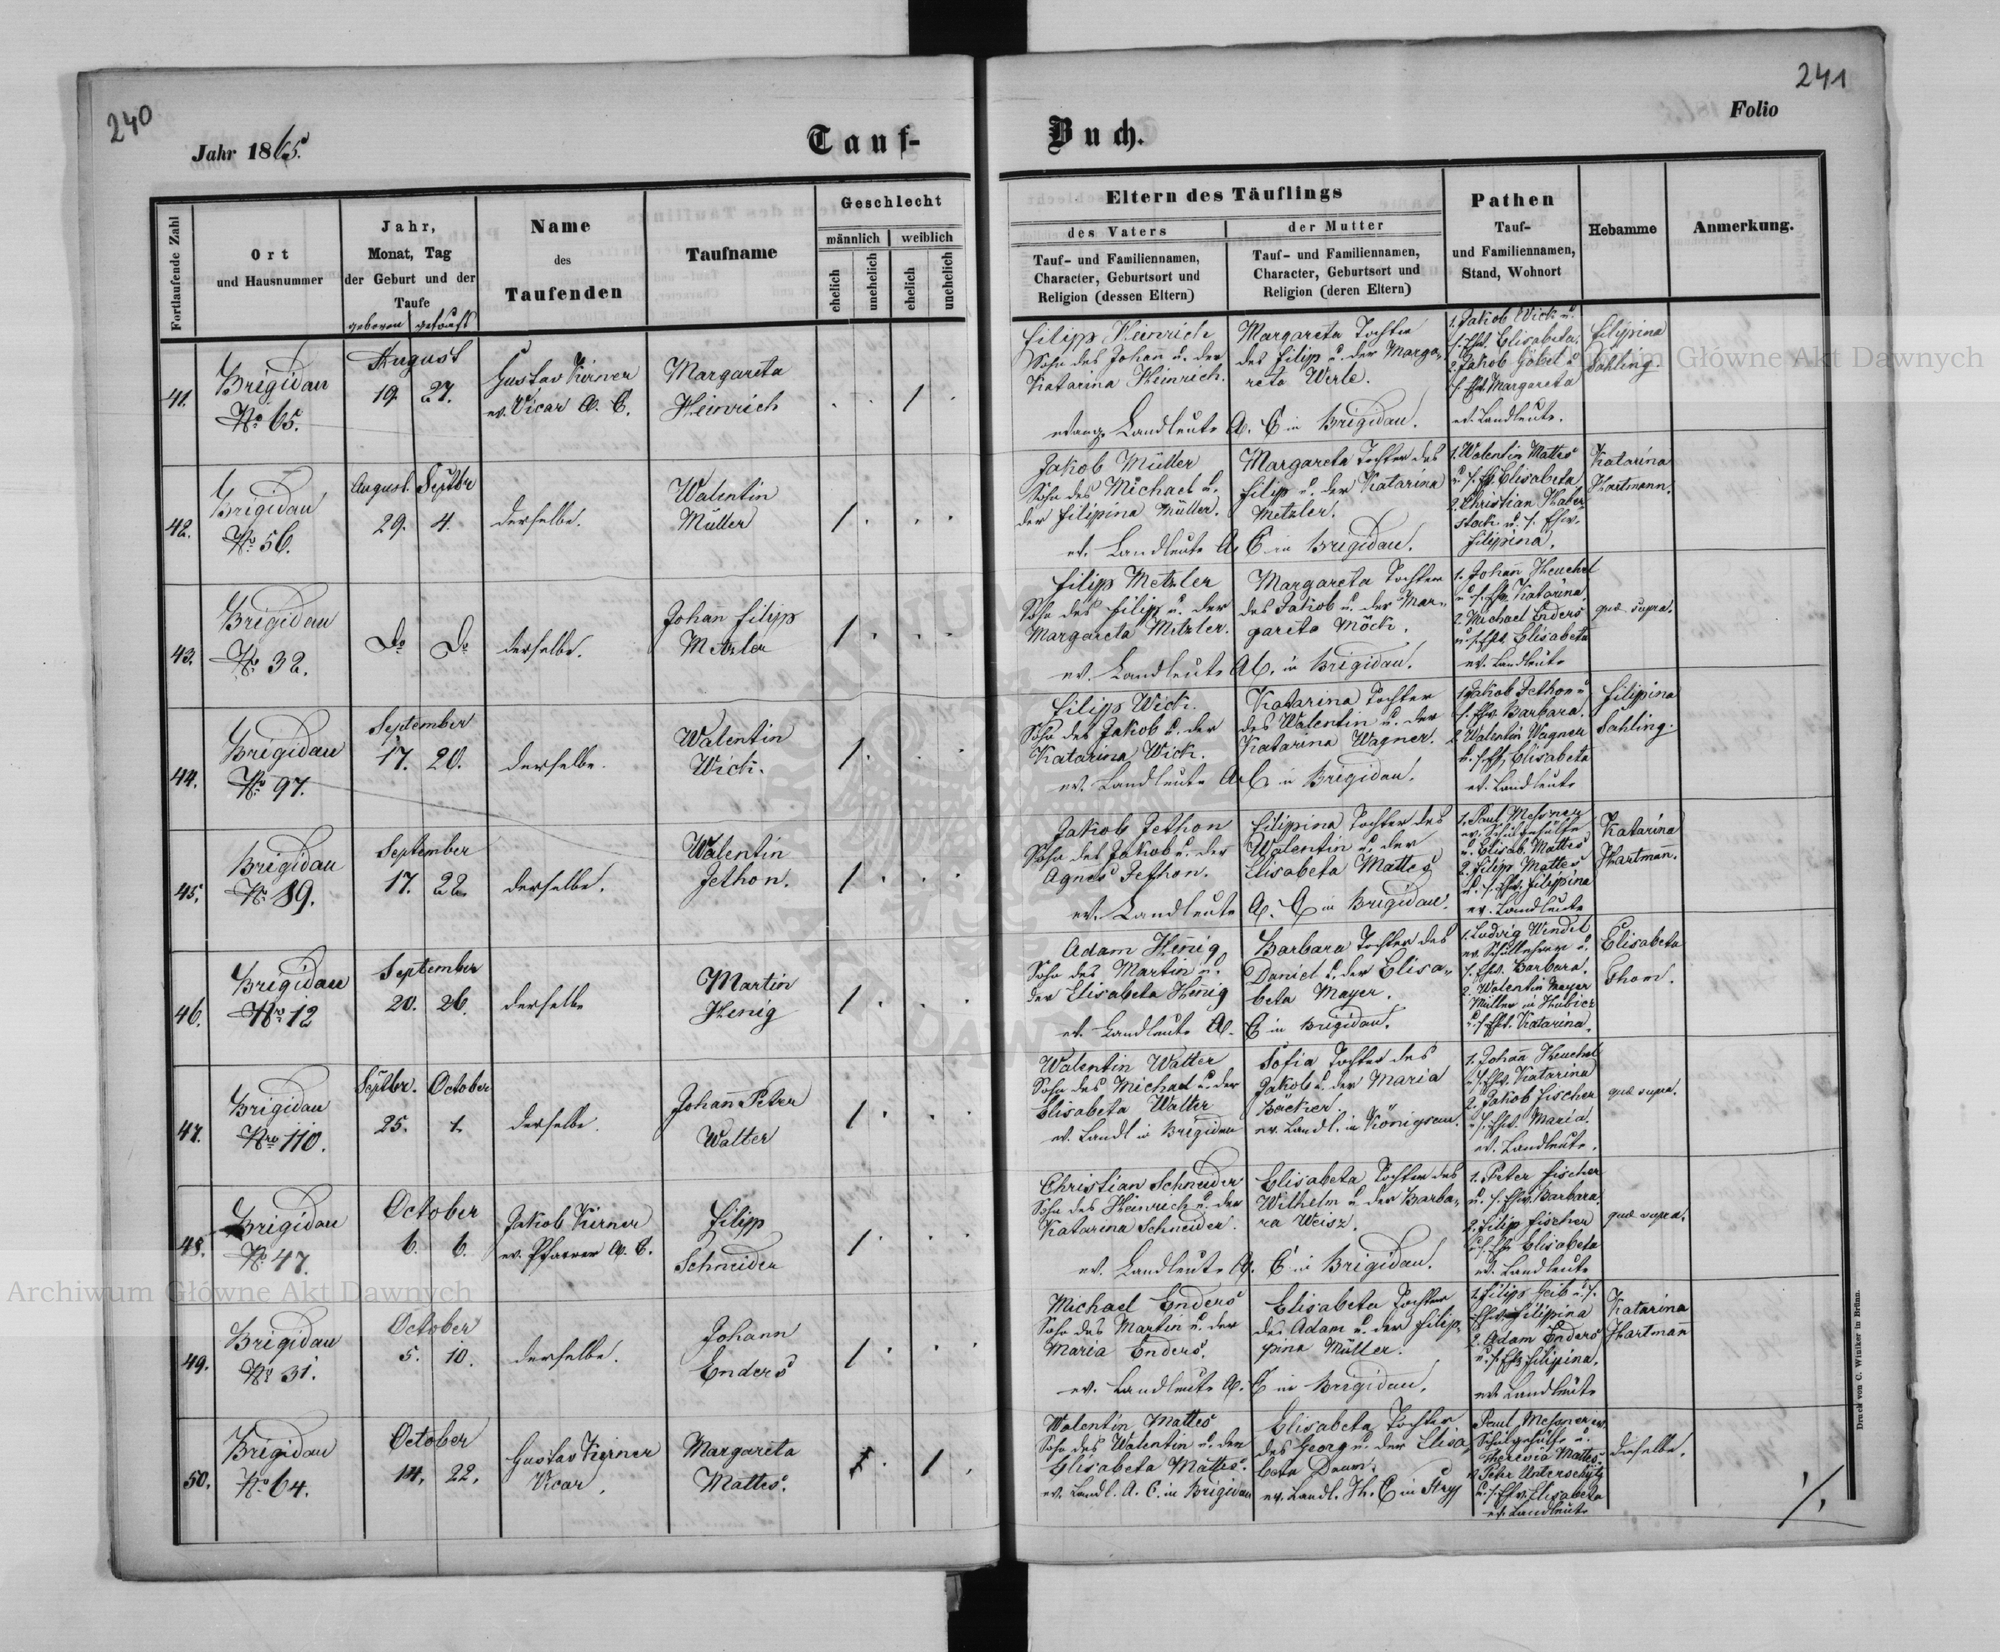 240
241
Jahr 1865.
Tauf-
Buch.
Folio
Fortlaufende Zahl
Ort
und Hausnummer
Jahr,
Monat, Tag
der Geburt und der
Taufe
geboren getauft
Name
des
Taufenden
Taufname
Geschlecht
männlich weiblich
ehelich unehelich ehelich unehelich
Eltern des Täuflings
des Vaters
Tauf- und Familiennamen,
Character, Geburtsort und
Religion (dessen Eltern)
der Mutter
Tauf- und Familiennamen,
Character, Geburtsort und
Religion (deren Eltern)
Pathen
Tauf-
und Familiennamen,
Stand, Wohnort
Hebamme
Anmerkung.
41.
Brigidau
No 65.
August
19. 27.
Gustav Kierner
ev. Vicar A. C.
Margareta
Heinrich
Filipp Heinrich
Sohn des Johan u. der
Katarina Heinrich.
Margareta Tochter
des Filip u. der Marga-
reta Werle.
evang. Landleute A. C in Brigidau.
1. Jakob Wick u.
s. Ehw. Elisabeta.
2. Jakob Göbel u
s. Ehw. Margareta
ev. Landleute.
Filipina
Sahling.
42.
Brigidau
No 56.
August. Septbr
29. 4.
derselbe.
Walentin
Müller
Jakob Müller
Sohn des Michael u.
der Filipina Müller.
Margareta Tochter des
Filip u. der Katarina
Metzler.
ev. Landleute A. C in Brigidau.
1. Walentin Mattes
u s. Ehw. Elisabeta
2. Christian Haber-
stock u. s. Ehw.
Filipina.
Katarina
Hartmann.
43.
Brigidau
No 32.
Do Do
derselbe.
Johan Filipp
Metzler
Filipp Metzler
Sohn des Filip u. der
Margareta Metzler.
Margareta Tochter
des Jakob u. der Mar-
gareta Möck.
ev. Landleute A C. in Brigidau.
1. Johan̄ Heuchel
u. s. Ehw. Katarina.
2. Michael Enders
u. s. Ehw. Elisabeta
ev. Landleute
quæ supra.
44.
Brigidau
No 97.
September
17. 20.
derselbe.
Walentin
Wick.
Filipp Wick.
Sohn des Jakob u. der
Katarina Wick.
Katarina Tochter
des Walentin u. der
Katarina Wagner.
ev. Landleute A. C. in Brigidau.
1. Jakob Jethon u
s. Ehw. Barbara.
2. Walentin Wagner
u. s. Ehw. Elisabeta
ev. Landleute
Filippina
Sahling.
45.
Brigidau
No 89.
September
17. 22.
derselbe.
Walentin
Jethon.
Jakob Jethon
Sohn des Jakob u. der
Agnes Jethon.
Filipina Tochter des
Walentin u. der
Elisabeta Mattes
ev. Landleute A. C in Brigidau.
1. Paul Messner
ev. Schulgehülfe
u. Elisab. Mattes
2. Filipp Mattes
u. s. Ehw. Filippina
ev. Landleute
Katarina
Hartman̄.
46.
Brigidau
Nro 12
September
20. 26.
derselbe
Martin
Henig
Adam Hen̄ig
Sohn des Martin u.
der Elisabeta Hen̄ig
Barbara Tochter des
Daniel u. der Elisa-
beta Mayer.
ev. Landleute A. C in Brigidau.
1. Ludwig Windel
ev. Schullehrer u.
s. Ehw. Barbara.
2. Walentin Mayer
Müller in Hubicz
u. s. Ehw. Katarina.
Elisabeta
Thom.
47.
Brigidau
Nro 110.
Septbr. October
25. 1.
derselbe.
Johan̄ Peter
Walter
Walentin Walter
Sohn des Michael u. der
Elisabeta Walter
ev. Landl in Brigidau
Sofia Tochter des
Jakob u. der Maria
Bäcker
ev. Landl. in Königsau.
1. Johan̄ Heuchel
u s. Ehw. Katarina
2. Jakob Fischer
u s. Ehw. Maria.
ev. Landleute.
quæ supra.
48.
Brigidau
No 47.
October
6. 6.
Jakob Kierner
ev. Pfarrer A. C.
Filipp
Schneider
Christian Schneider
Sohn des Heinrich u. der
Katarina Schneider.
Elisabeta Tochter des
Wilhelm u. der Barba-
ra Weisz.
ev. Landleute A. C in Brigidau.
1. Peter Fischer
u. s. Ehw. Barbara.
2. Filip Fischer
u. s. Ehw Elisabeta
ev. Landleute
quæ supra.
49.
Brigidau
No 31.
October
5. 10.
derselbe.
Johann
Enders
Michael Enders
Sohn des Martin u. der
Maria Enders.
Elisabeta Tochter
des Adam u. der Filip-
pina Müller.
ev. Landleute A. C in Brigidau.
1. Filipp Geib u. s.
Ehw. Filippina
2. Adam Enders
u. s. Ehw Filipina.
ev. Landleute
Katarina
Hartman̄
50.
Brigidau
No 64.
October
14. 22.
Gustav Kierner
Vicar.
Margareta
Mattes.
Walentin Mattes
Sohn des Walentin u. der
Elisabeta Mattes.
ev. Landl. A. C. in Brigidau
Elisabeta Tochter
des Georg u. der Elisa
beta Daum.
ev. Landl. H. C in Stryj
Paul Messner ev.
Schulgehülfe u.
Theresia Mattes.
2. Peter Unterschütz
u. s. Ehw. Elisabeta
ev. Landleute
dieselbe.
Druck von C. Winiker in Brünn.
Archiwum Główne Akt Dawnych
Archiwum Główne Akt Dawnych